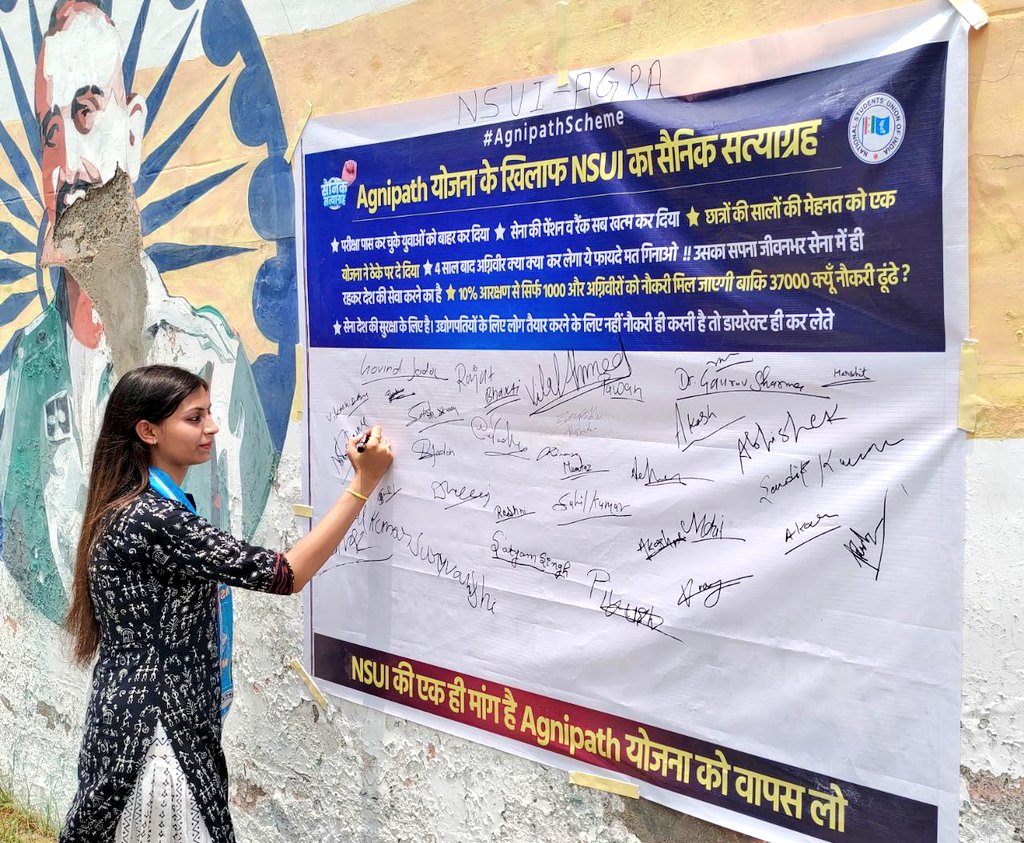 NSUI-AGRA
#AgnipathScheme
NATIONAL STUDENTS' UNION OF INDIA
सैनिक
सत्याग्रह
Agnipath योजना के खिलाफ NSUI का सैनिक सत्याग्रह
★ परीक्षा पास कर चुके युवाओं को बाहर कर दिया ★ सेना की पेंशन व रैंक सब खत्म कर दिया ★ छात्रों की सालों की मेहनत को एक
योजना ने ठेके पर दे दिया ★ 4 साल बाद अग्निवीर क्या क्या कर लेगा ये फायदे मत गिनाओ !! उसका सपना जीवनभर सेना में ही
रहकर देश की सेवा करने का है ★ 10% आरक्षण से सिर्फ 1000 और अग्निवीरों को नौकरी मिल जाएगी बाकि 37000 क्यूँ नौकरी ढूंढे ?
★ सेना देश की सुरक्षा के लिए है। उद्योगपतियों के लिए लोग तैयार करने के लिए नहीं नौकरी ही करनी है तो डायरेक्ट ही कर लेते
Govind
Rajat
Bharti
Ahmed
Pawan
Dr. Gaurav Sharma
Harshit
Akash
Abhishek
Sahil Kumar
Reshni
Satyam Singh
Akash
Kumar
NSUI की एक ही मांग है Agnipath योजना को वापस लो